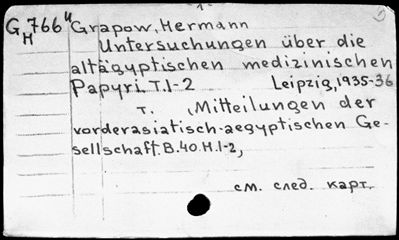 1.
G 766 u Grapow, Hermann
H
Untersuchungen über die
altägyptischen medizinischen
Papyri. T.1-2 Leipzig, 1935-36
т. „Mitteilungen der
vorderasiatisch-aegyptischen Ge-
sellschaft. B.40.H.1-2,
см. след. карт.